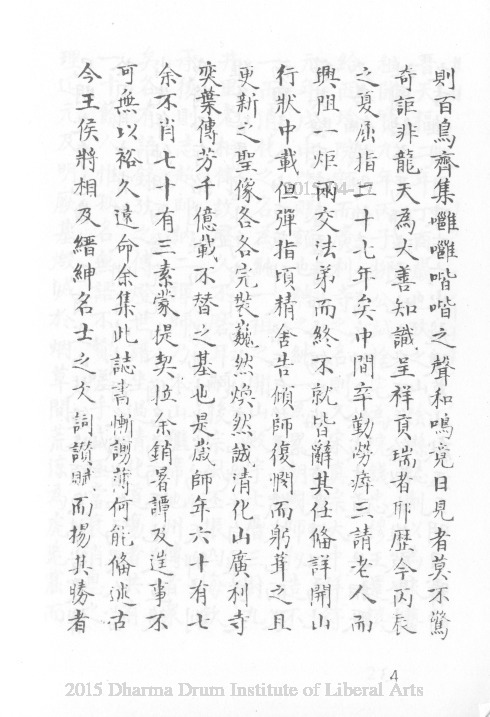 則百鳥齊集嚾嚾喈喈之聲和鳴竟日見者莫不驚
奇詎非龍天為大善知識呈祥貢瑞者耶歷今丙辰
之夏屈指二十七年矣中間辛勤勞瘁三請老人而
興阻一炬兩交法弟而終不就皆辭其任備詳開山
行狀中載但彈指頃精舍告傾師復憫而躬葺之且
更新之聖像各各完裝巍然煥然誠清化山廣利寺
奕葉傳芳千億載不替之基也是歲師年六十有七
余不肖七十有三素蒙提契拉余銷暑譚及逆事不
可無以裕久遠命余集此誌書慚謭薄何能備述古
今王侯將相及縉紳名士之大詞讚賦而揚其勝者
2015-04-17
4
2015 Dharma Drum Institute of Liberal Arts